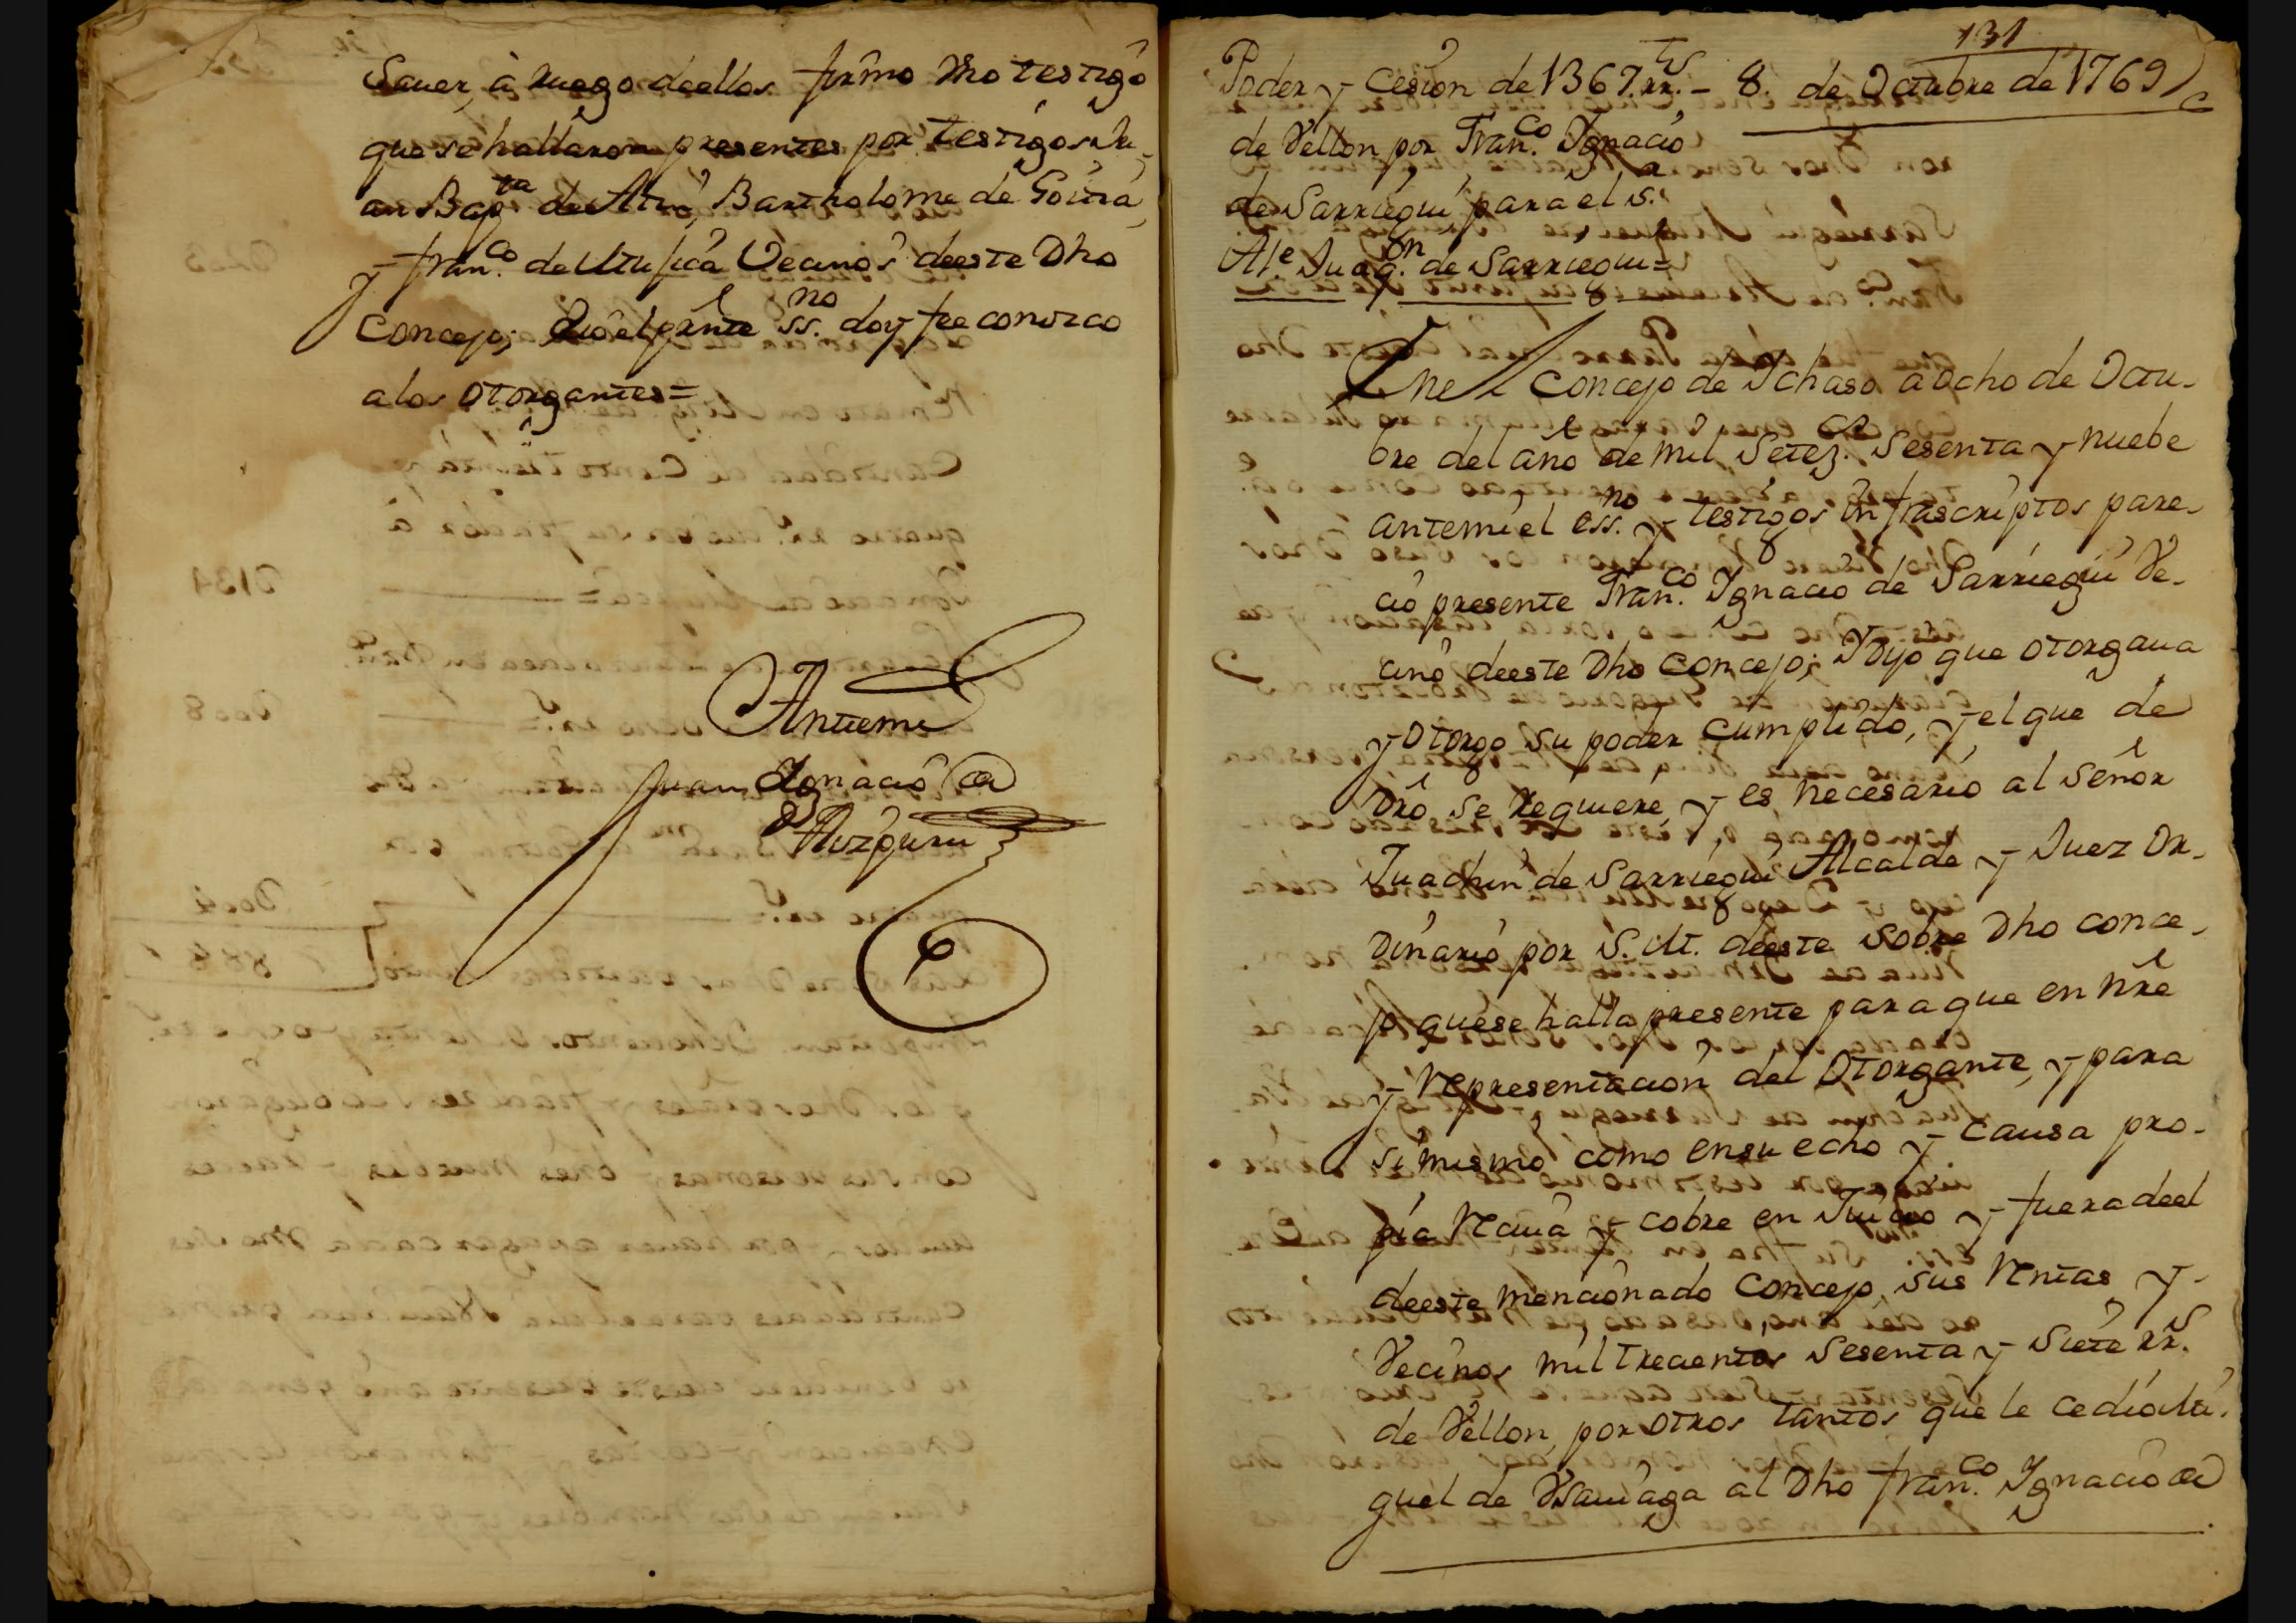 Saver, à ruego deellos firmo Vno testigo
que se hallaron presentes por testigos Ju-
an Bap.ta de Bartholome de
y Fran.co de Vecinos deeste Dho
Concejo; Qio el pnte ss.no doy fee conozco
a los otorgantes=
Anttemi
Juan Ignacio de
Auzguru
131
Poder y Cesion de 1367. rr.s - 8. de Octubre de 1769
de Vellon por Fran.co Ignacio
de Sarriegui para el S.r
Al.e Juaq.n de Sarriegui=
Enel Concejo de Ichaso a ocho de Octu-
bre del año de mil Setez.s Sesenta y nuebe
antemi el ess.no y testigos infrascriptos pare-
cio presente Fran.co Ignacio de Sarriegui Ve-
cino deeste Dho Concejo; Y Dijo que otorgaua
y otorgo su poder cumplido, y el que de
Dro se requiere, y es necesario al señor
Juachin de Sarriegui Alcalde y Juez Or-
dinario por S. M. deeste sobre Dho conce-
jo quese halla presente para que en nre
y representacion del Otorgante, y para
si mismo como ensu echo y causa pro-
pia Reciua y cobre en Juicio y fuera deel
deeste mencionado Concejo, sus Rentas y
Vecinos mil trecientos Sesenta y Siete rr.s
de Vellon, por otros tantos que le cedio Mi-
guel de Vsauiaga al Dho Fran.co Ignacio de